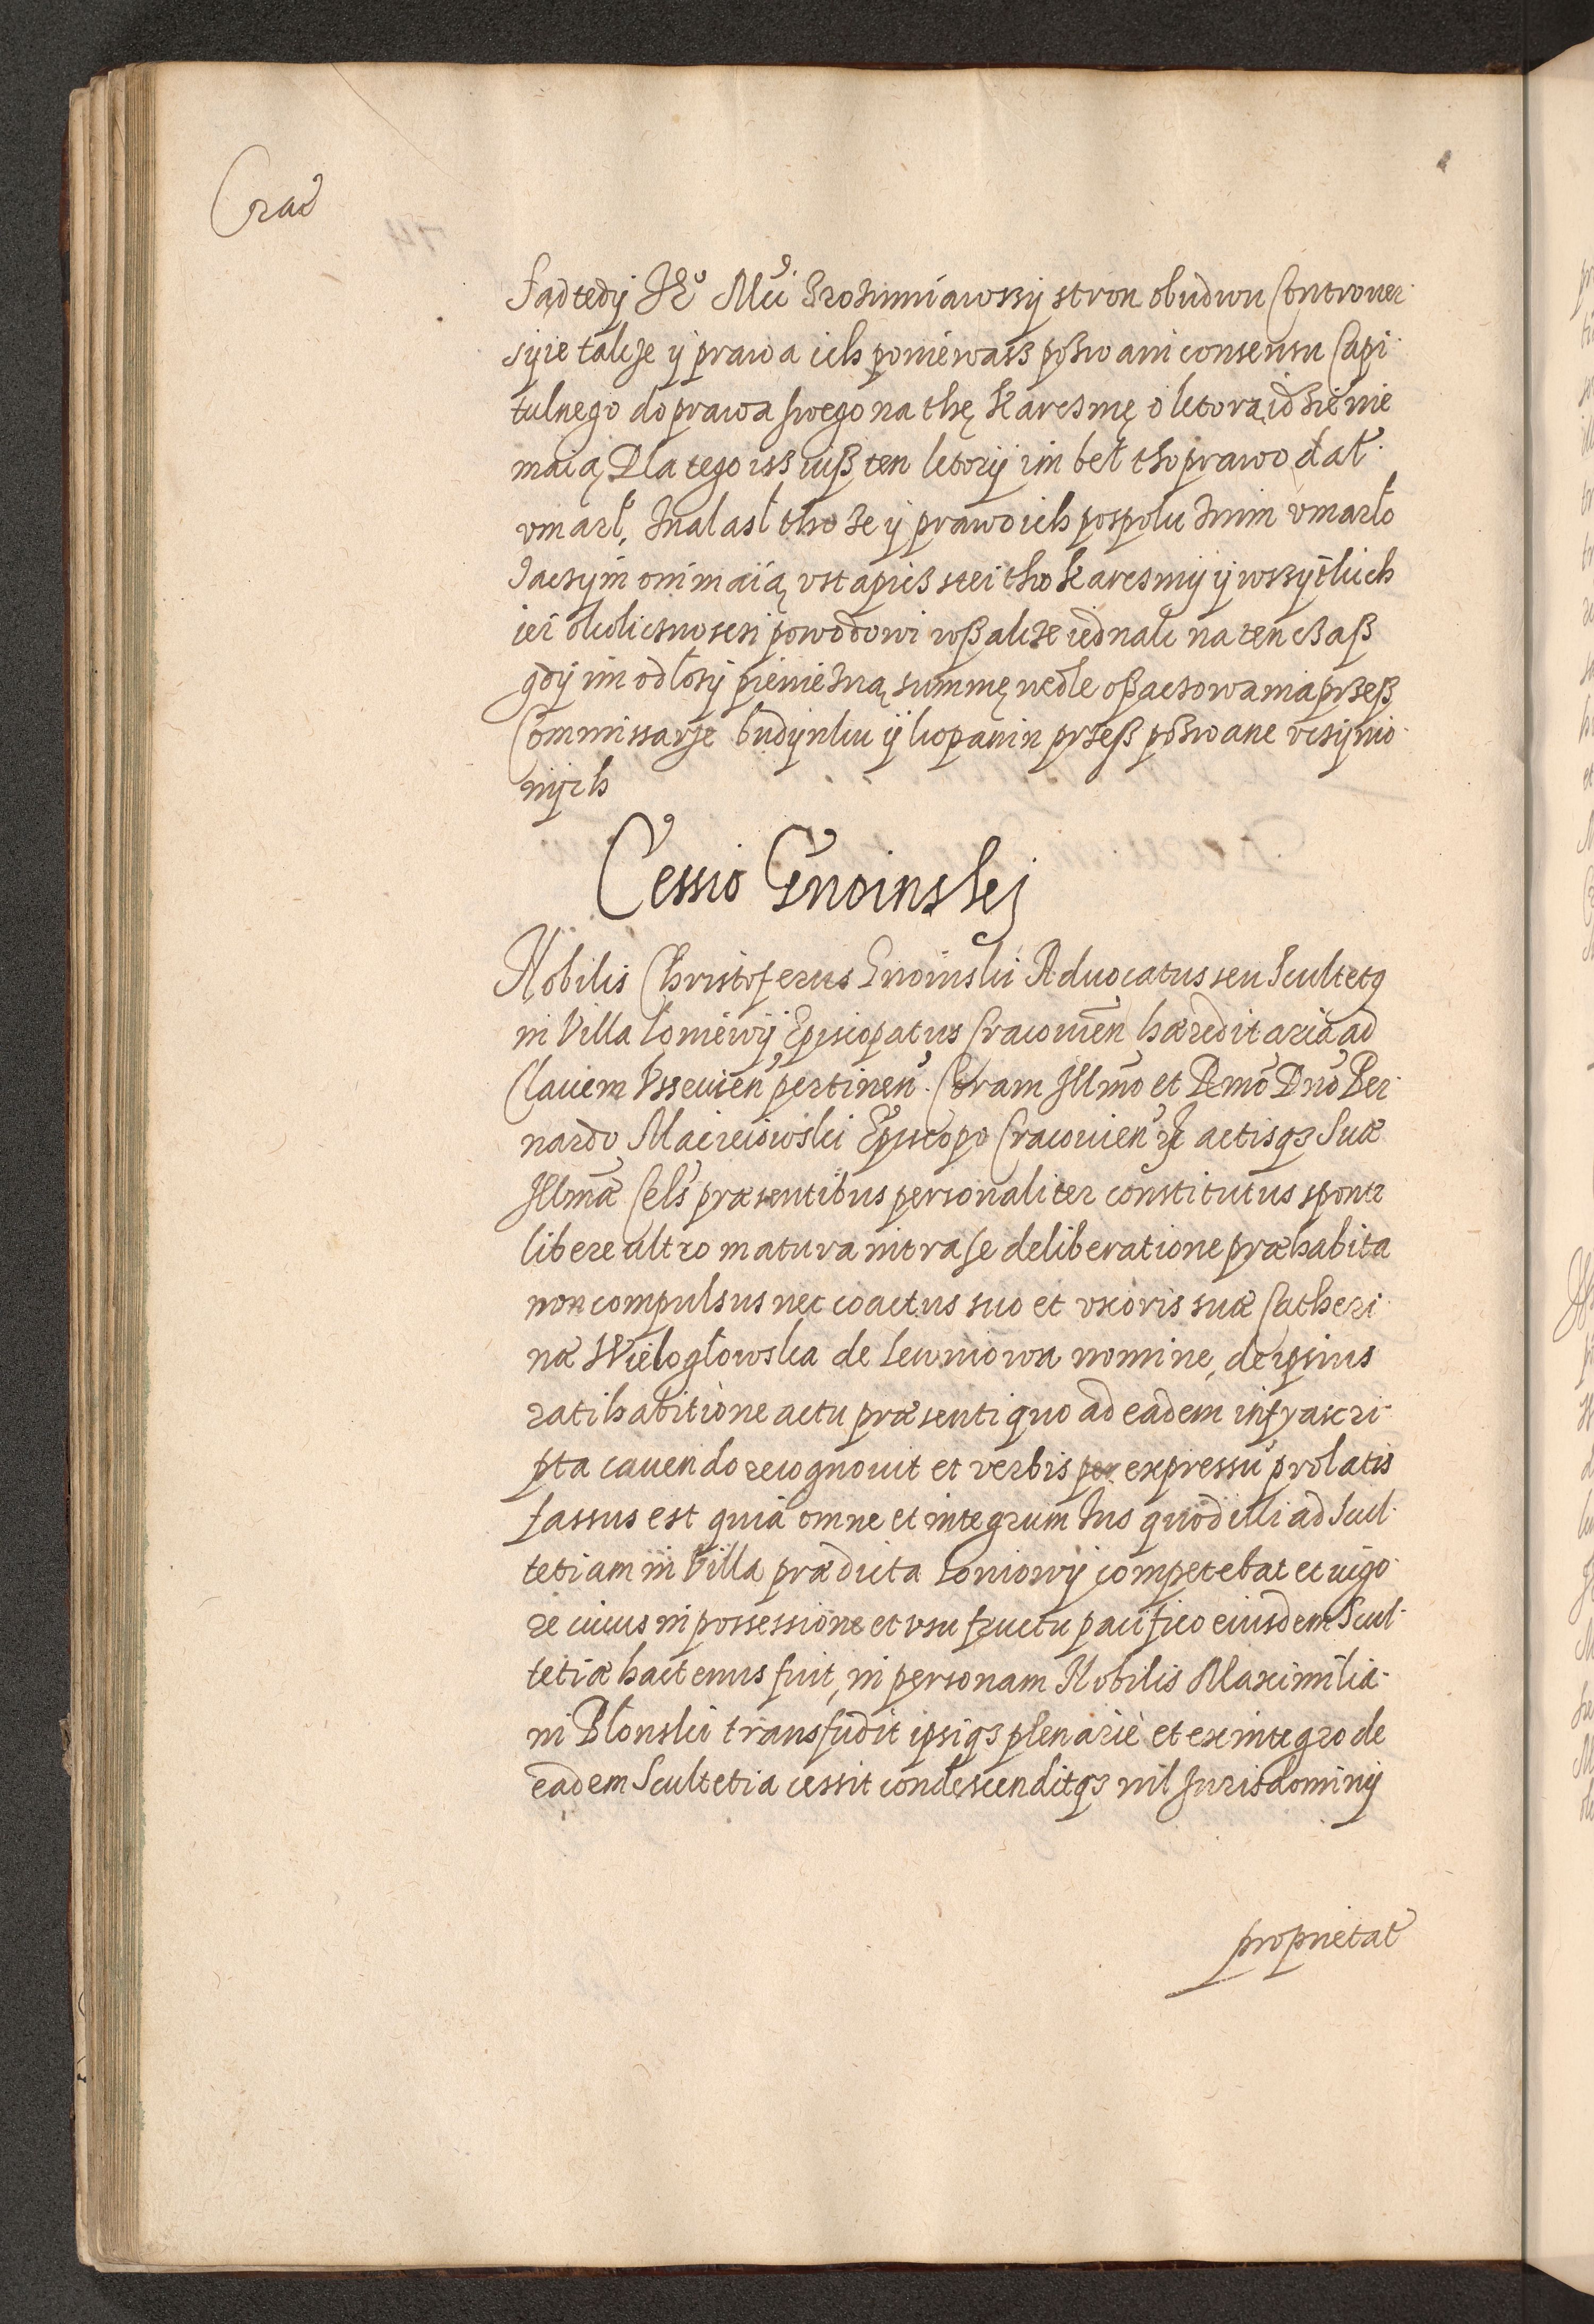 Crac̃
Sąd tedy JE° Mci Zrozumiawszy stron obudwu Controuer
syie także y prawa ich ponieważ pozwani consensu Capi
tulnego do prawa swego na thę Karczmę o ktorą idzie nie
maią Dla tego isz iuß ten ktory im beł tho prawo dał
vmarł, Znalasł tho że y prawo ich pospołu znim vmarło
Zaczym oni maią vstąpicz stei tho Karczmy y wszytkich
iei okolicznosczi powodowi wßakże iednak na ten czaß
gdy im odłoży pieniężną summę wedle oßaczowania przeß
Commissarze budynku y kopanin przeß pozwane vczynio
nych
Cessio Gnoinskj
Nobilis Christoferus Gnoinski Aduocatus seu Scultetꝯ
in Villa Loniewy Episcopatus Cracouien̄ hæreditaria ad
Clauem Vsseuien̄ pertinen̄. Coram Jllmo et Rmo Dno Ber
nardo Macieiowski Episcopo Cracouien̄ &c actisqꝫ Suæ
Jllmæ Cels præsentibus personaliter constitutus sponte
libere ultro matura intra se deliberatione præhabita
non compulsus nec coactus suo et vxoris suæ Catheri
næ Wielogłowska de Lewniowa nomine, de ipsius
ratihabitione actu præsenti quo ad eadem infrascri
pta cauendo recognouit et verbis per expressū prolatis
fassus est quia omne et integrum Jus quod illi ad Scul
tetiam in Villa prædicta Loniowy competebat et uigo
re cuius in possessione et vsu fructu pacifico eiusdem Scul
tetiæ hactenus fuit, in personam Nobilis Maximilia
ni Błonski transfudit ipsiqꝫ plenariè et ex integro de
eadem Scultetia cessit condescenditqꝫ nil Juris dominÿ
proprietat̃